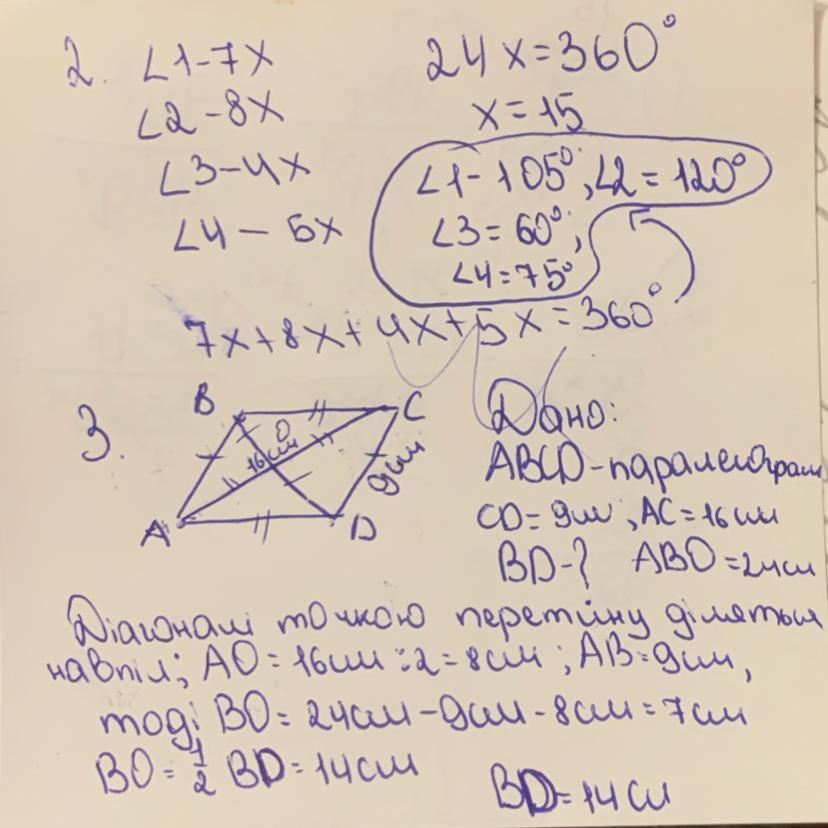 2. ∠1-7x
∠2-8x
∠3-4x
∠4-5x
24x=360°
x=15
∠1-105°, ∠2=120°
∠3=60°;
∠4=75°
7x+8x+4x+5x=360°
3.
B
C
O
16см
9см
A
D
Дано:
ABCD-паралелограм
CD=9см, AC=16см
BD-? ABO=24см
Діагоналі точкою перетину діляться
навпіл; AO=16см:2=8см; AB=9см,
тоді BO=24см-9см-8см=7см
BO=1/2 BD=14см
BD=14см